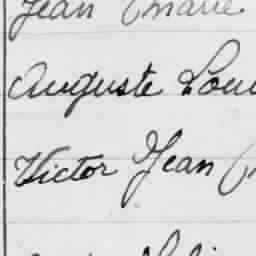 Jean Marie
Auguste Lou
Victor Jean